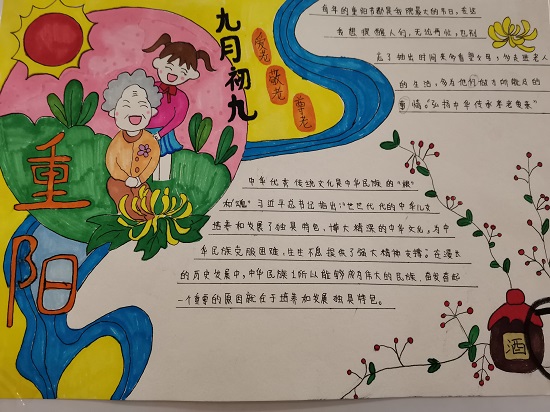 重阳
九月初九
爱老
敬老
重老
每年的重阳节都是我国最大的节日,在这
我想提醒人们,无论再忙,也别
忘了抽出时间来多看望父母,多走进老人
的生活,多为他们做力所能及的
事情。"弘扬中华传承孝老爱亲"
中华优秀传统文化是中华民族的"根"
和"魂"习近平总书记指出"世世代代的中华儿女
培养和发展了独具特色、博大精深的中华文化,为中
华民族克服困难、生生不息提供了强大精神支撑。在漫长
的历史发展中,中华民族之所以能够成为伟大的民族、奋发奋起
一个重要的原因就在于培养和发展独具特色。
酒